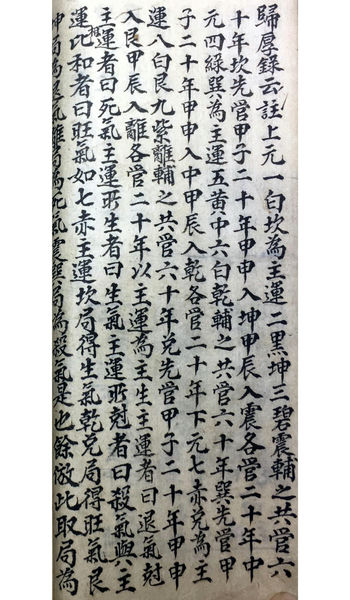 歸厚錄云註上元一白坎為主運二黑坤三碧震輔之共管六
十年坎先管甲子二十年甲申入坤甲辰入震各管二十年中
元四綠巽為主運五黃中六白乾輔之共管六十年巽先管甲
子二十年甲申入中甲辰入乾各管二十年下元七赤兌為主
運八白艮九紫離輔之共管六十年兌先管甲子二十年甲申
入艮甲辰入離各管二十年以主運為主生主運者曰退氣尅
主運者曰死氣主運所生者曰生氣主運所尅者曰殺氣與主
運比和者曰旺氣如七赤主運坎局得生氣乾兌局得旺氣艮
坤局為退氣離局為死氣震巽局為殺氣是也餘倣此取局為